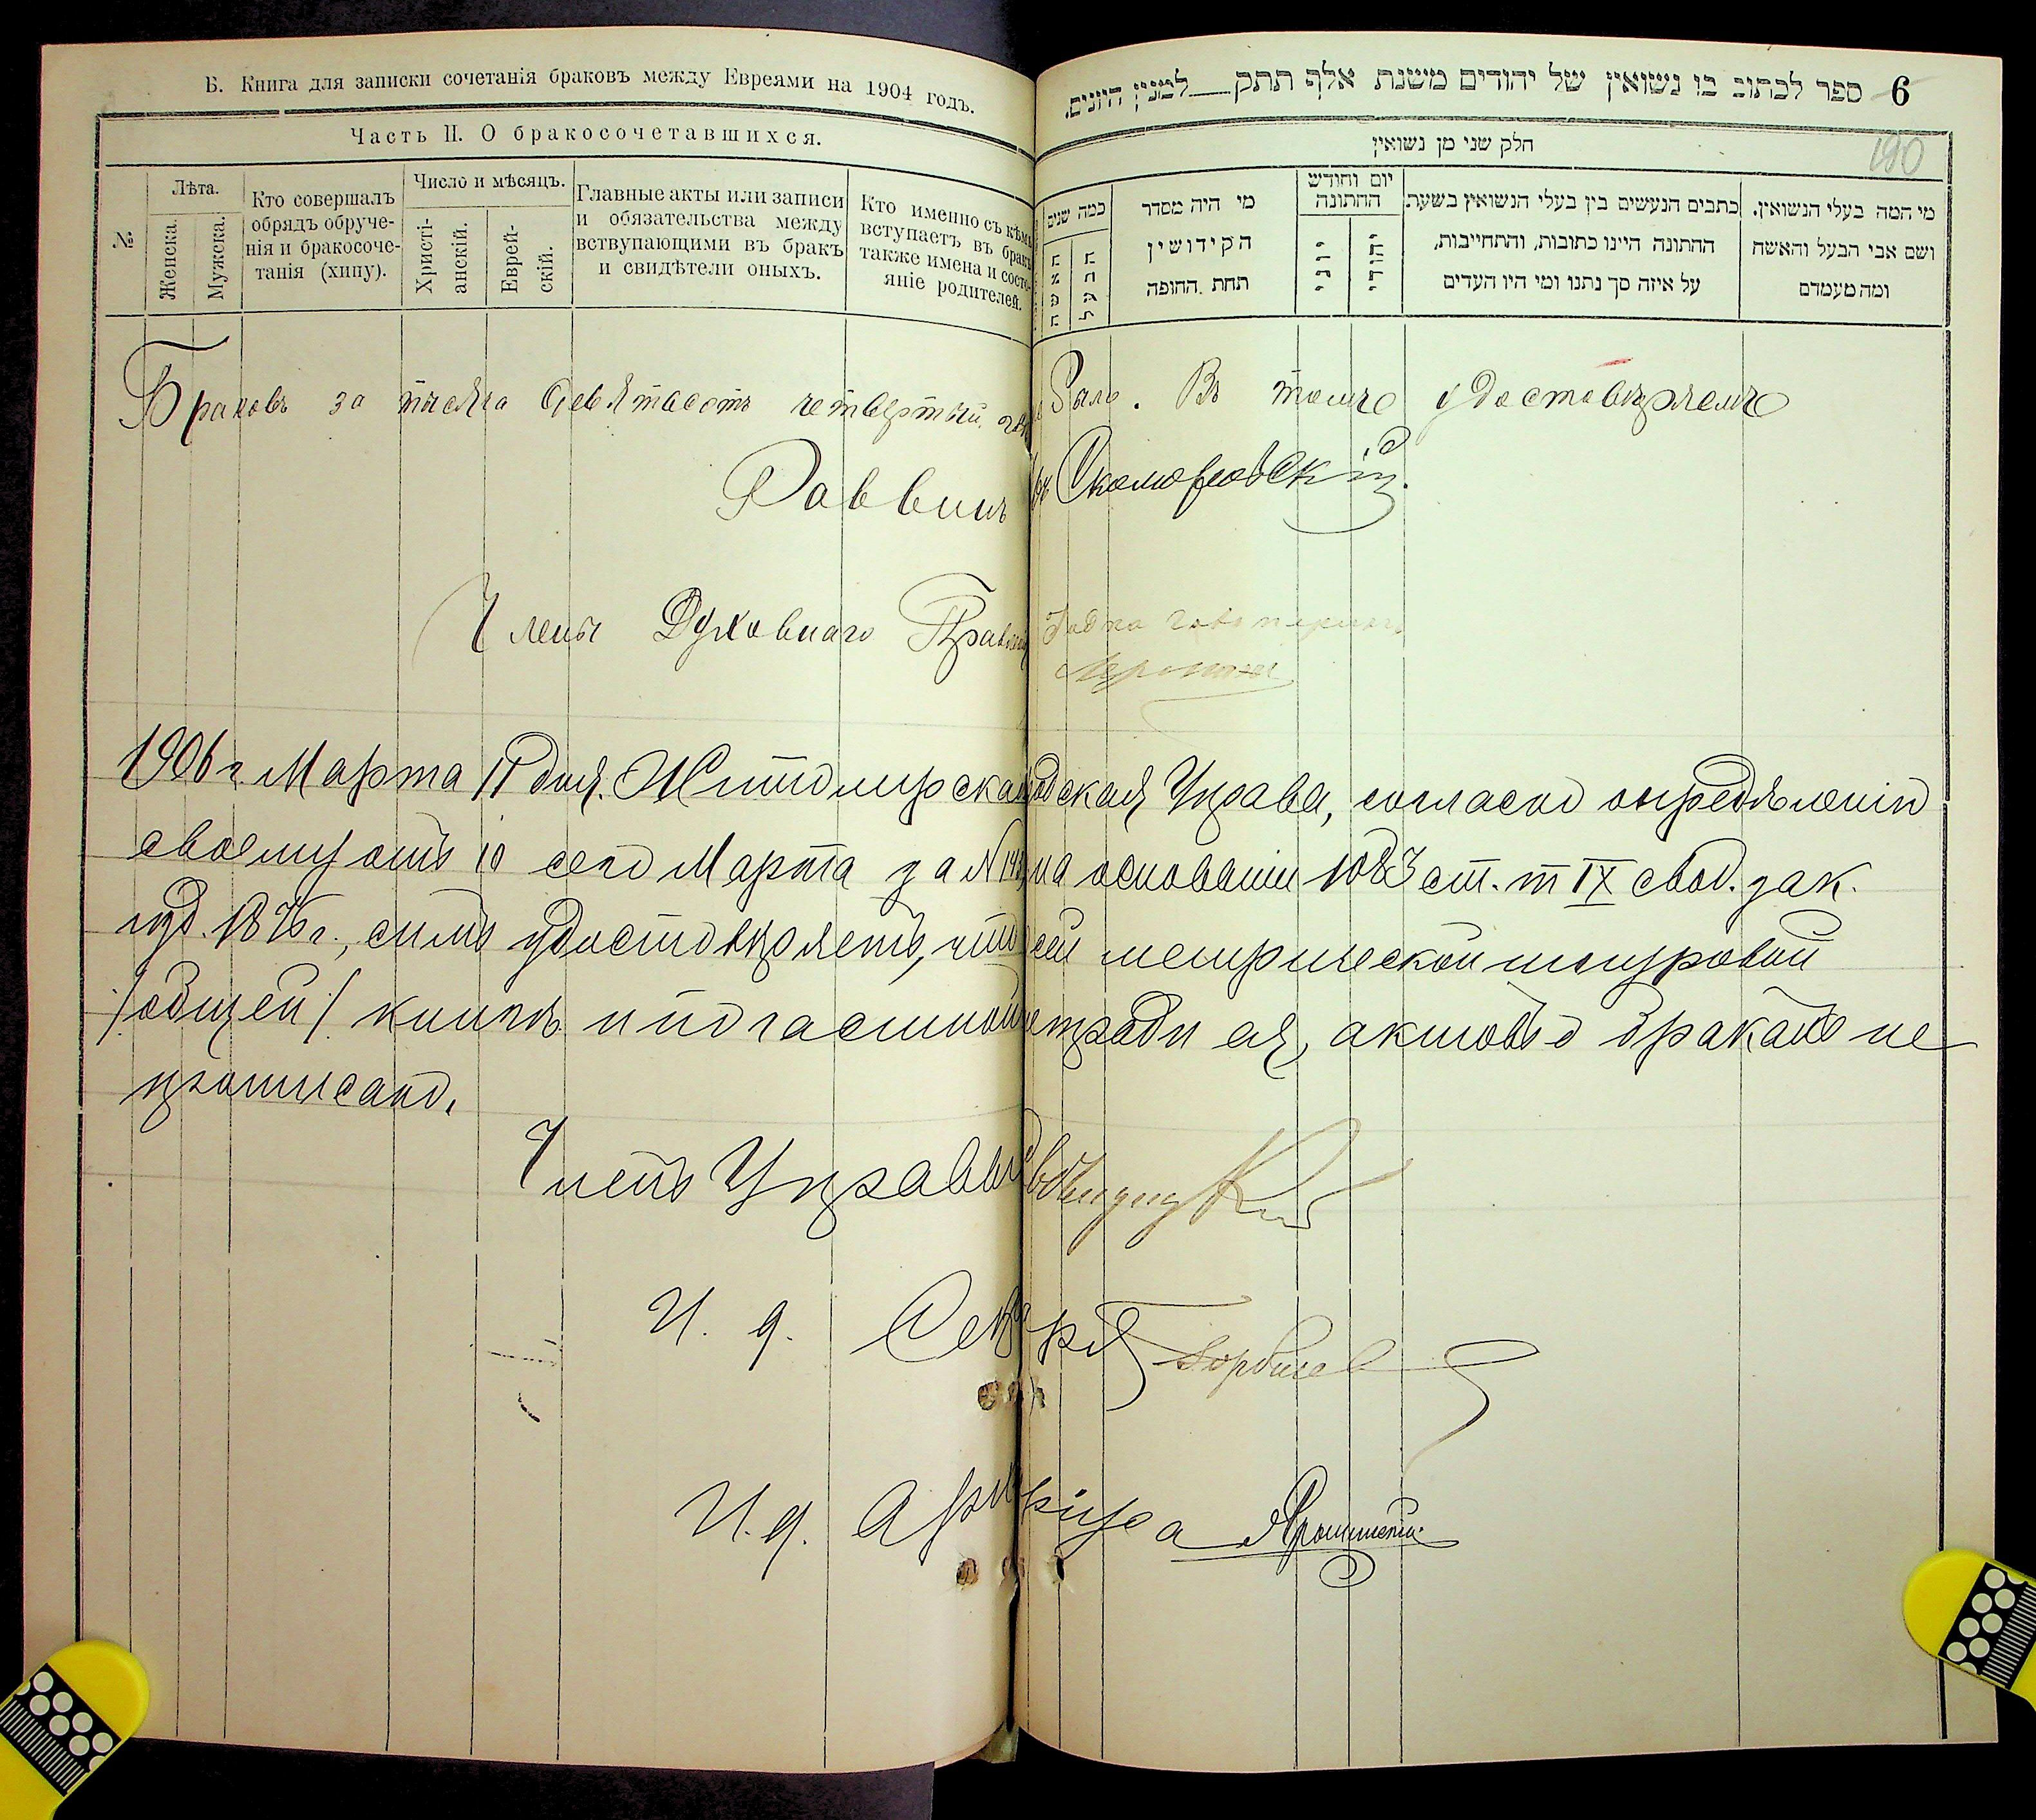 Б. Книга для записки сочетанія браковъ между Евреями на 1904 годъ.
Часть II. О бракосочетавшихся.
№.
Лѣта.
Женска.
Мужска.
Кто совершалъ
обрядъ обруче-
нія и бракосоче-
танія (хипу).
Число и мѣсяцъ.
Христі-
анскій.
Еврей-
скій.
Главные акты или записи
и обязательства между
вствупающими въ бракъ
и свидѣтели оныхъ.
Кто именно съ кѣмъ
вступаетъ въ бракъ
также имена и состо-
яніе родителей.
6 ספר לכתוב בו נשואין של יהודים משנת אלף תתק למנין היונים.
חלק שני מן נשואין
190
כמה שנים
האשה
הבעל
מי היה מסדר
הקידושין
תחת החופה
יום וחודש
החתונה
יוני
יהודי
כתבים הנעשים בין בעלי הנשואין בשעת
החתונה היינו כתובות, והתחייבות,
על איזה סך נתנו ומי היו העדים
מי המה בעלי הנשואין.
ושם אבי הבעל והאשה
ומה מעמדם
Браковъ за тысяча девятьсотъ четвертый. Въ томъ удостовѣряемъ
Раввинъ Скоморовскій.
Члены Духовнаго Правленія
1906 г. Марта 11 дня. Житомирская Городская Управа, согласно опредѣленію
своему отъ 10 сего Марта за № на основаніи 1083 ст. т IX свод. зак.
изд. 1876 г., симъ удостовѣряетъ, что въ сей метрической шнуровой
/общей/ книгѣ и подчасной тетради ея, актовъ о бракахъ не
прописано.
Членъ Управы
И. д. Секретаря
И. д. Архиваріуса